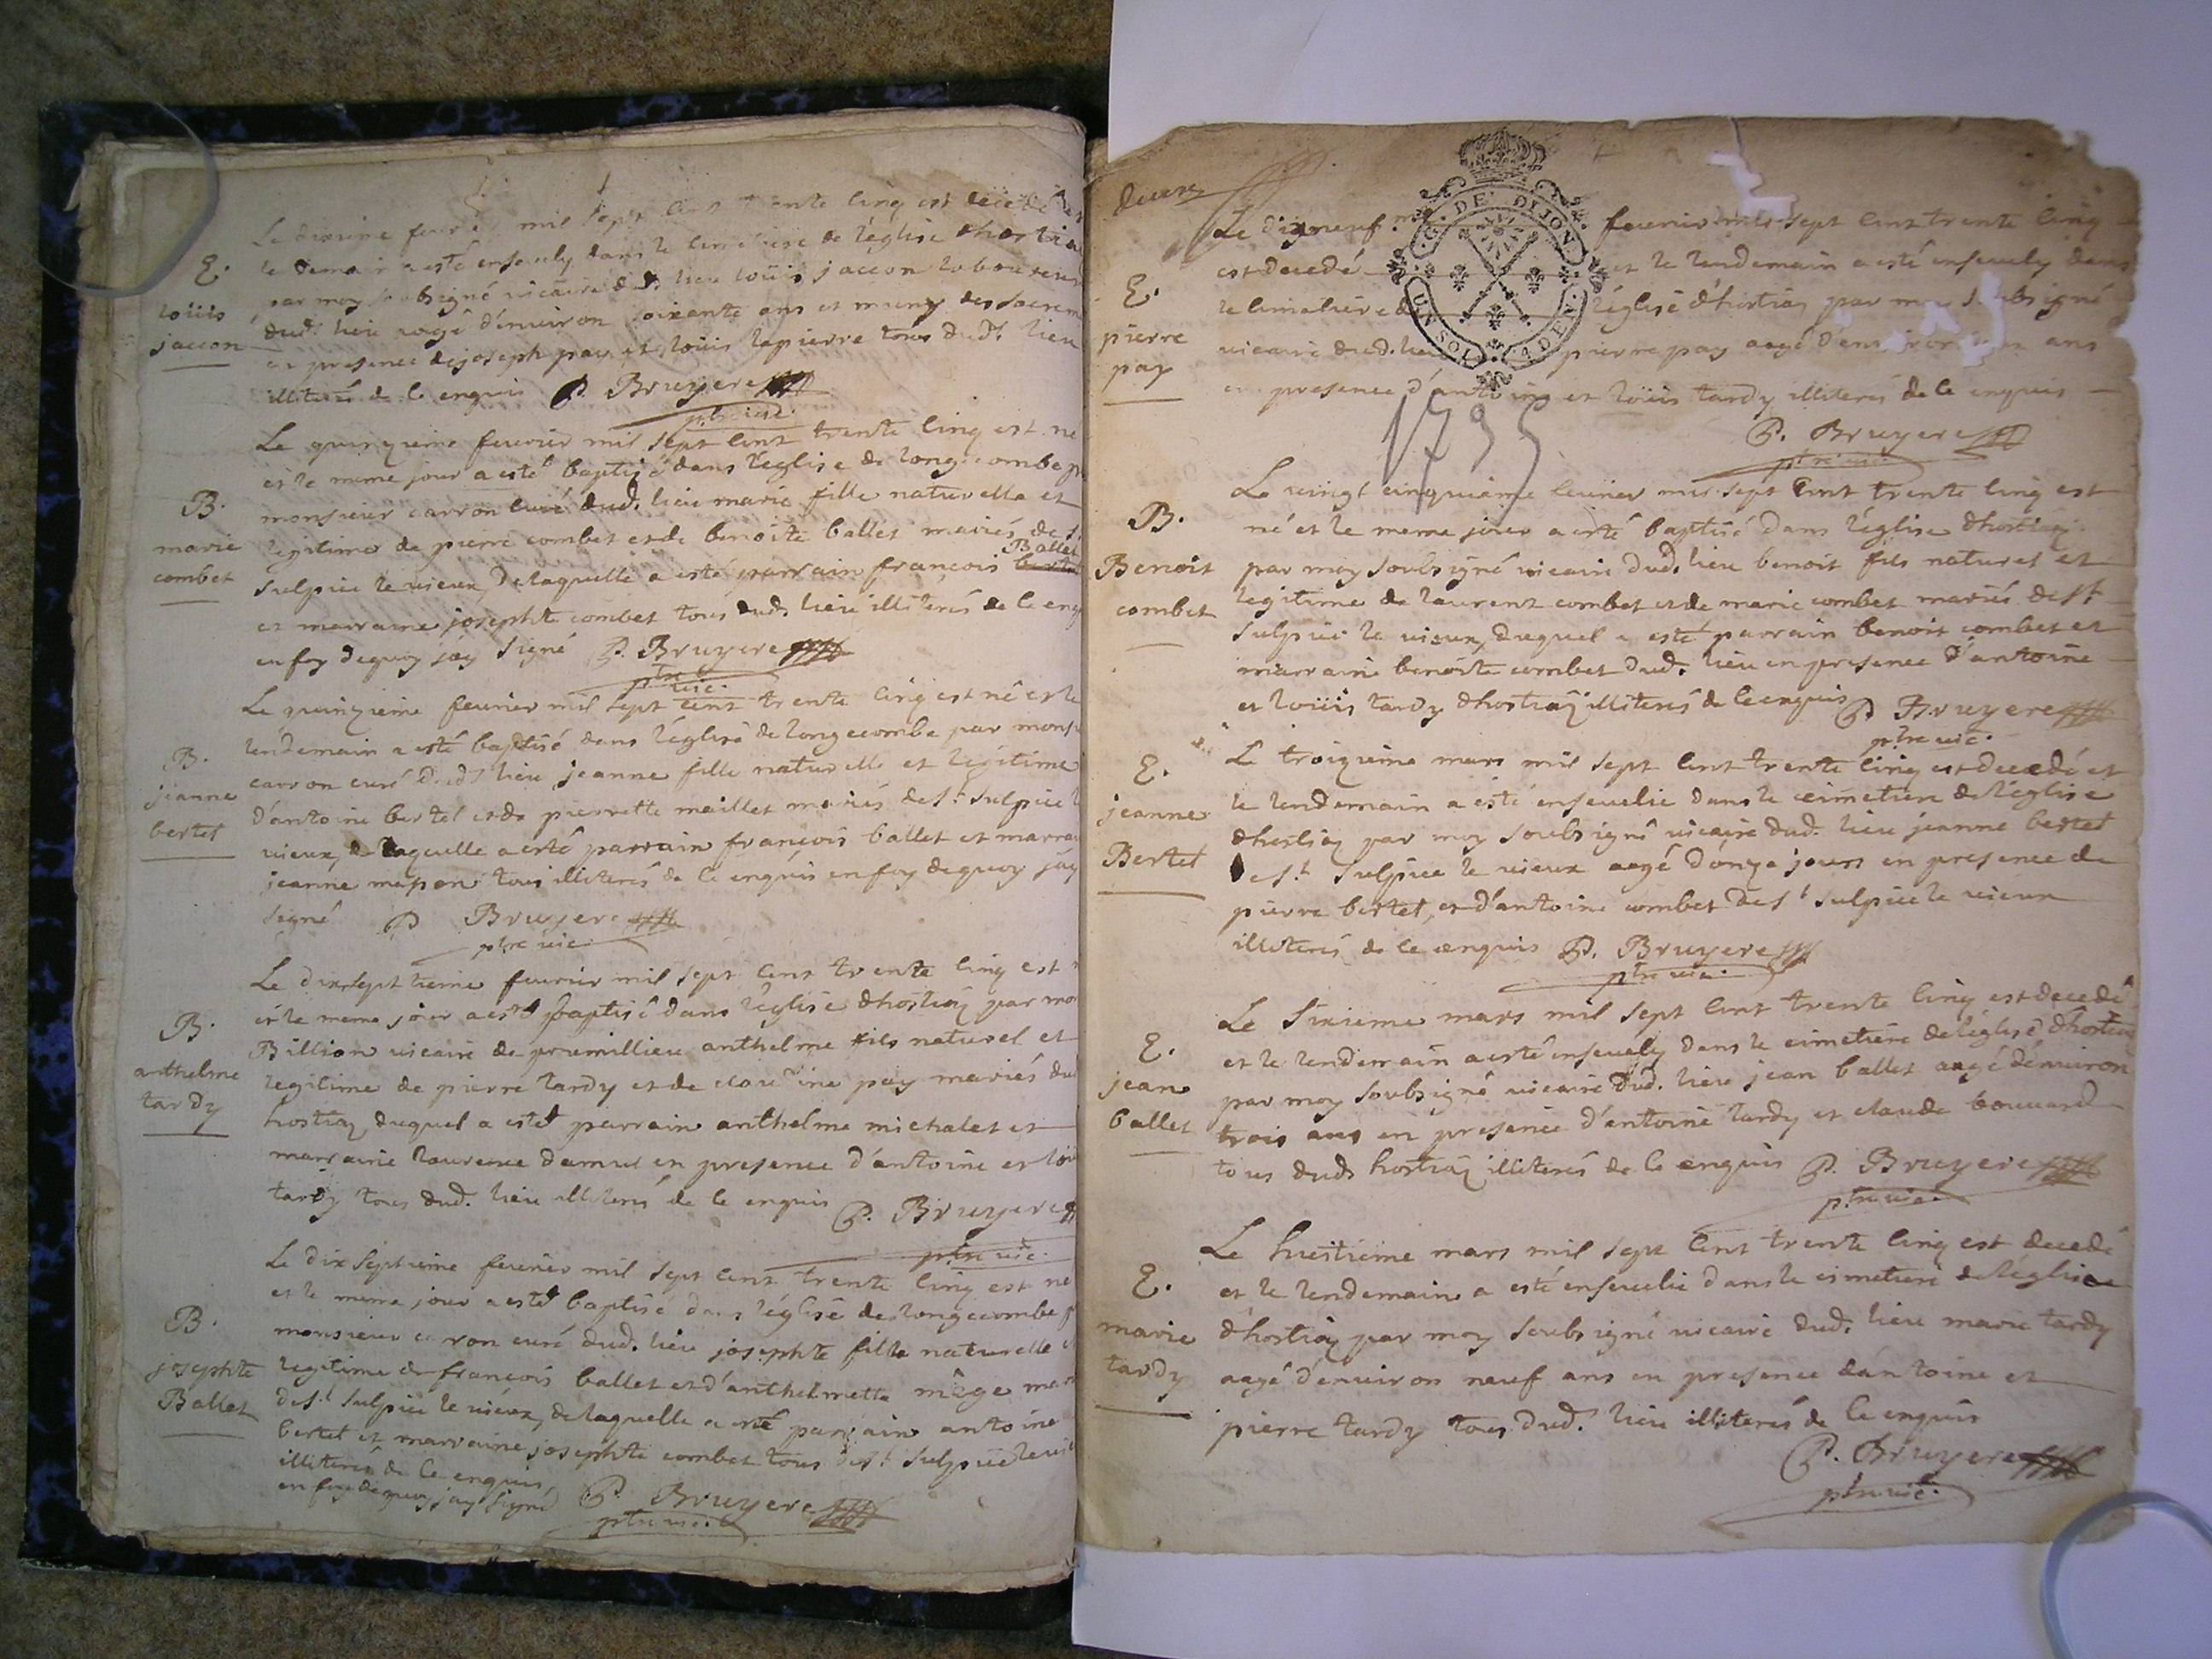 E.
loüis
jaccon
Le dixieme feurier mil sept cent trente cinq est decedé et
le demain a esté enseuely dans le cimetiere de l'église dhostia
par moy soubsigné vicaire dud. lieu loüis jaccon laboureur
dud. lieu aagé d'enuiron soixante ans et muny des sacrem
en presence de joseph pay et loüis lapierre tous dud. lieu
illiterés de ce enquis P. Bruyere
ptre vic.
B.
marie
combet
Le quinzieme feurier mil sept cent trente cinq est ne
et le meme jour a esté baptisé dans l'église de longecombe p
monsieur carron curé dud. lieu marie fille naturelle et
legitime de pierre combet et de benoite ballet mariés de st
Ballet
sulpice le vieux, de laquelle a esté parrain françois
et marraine josephte combet tous dud. lieu illiterés de ce enq
en foy dequoy j'ay signé P. Bruyere
ptre vic.
B.
jeanne
bertet
Le quinzieme feurier mil sept cent trente cinq est né et le
lendemain a esté baptisé dans l'église de longecombe par mons
carron curé dud. lieu jeanne fille naturelle et legitime
d'antoine bertet et de pierrette maillet mariés de st. sulpice l
vieux, de laquelle a esté parrain françois ballet et marrai
jeanne masson tous illiterés de ce enquis en foy dequoy j'ay
signé P. Bruyere
ptre vic.
B.
anthelme
tardy
Le dix septieme feurier mil sept cent trente cinq est
et le meme jour a esté baptisé dans l'église dhostiaz par mo
Billion vicaire de premillieu anthelme fils naturel et
legitime de pierre tardy et de claudine pay mariés du
hostiaz, duquel a esté parrain anthelme michalet et
marraine laurence damus en presence d'antoine et loü
tardy tous dud. lieu illiterés de ce enquis P. Bruyere
ptre vic.
B.
josephte
Ballet
Le dix septieme feurier mil sept cent trente cinq est ne
et le meme jour a esté baptisé dans l'église de longecombe p
monsieur carron curé dud. lieu josephte fille naturelle e
legitime de françois ballet et d'anthelmette mêge mar
de st. sulpice le vieux, de laquelle a esté parrain antoine
bertet et marraine josephte combet tous de st. sulpice le vi
illiterés de ce enquis
en foy dequoy j'ay signé P. Bruyere
ptre vic.
G. DE DIJON
1735
E.
pierre
pay
Le dixneuf.me feurier mil sept cent trente cinq
est decedé et le lendemain a esté enseuely dans
le cimetiere de l'église d'hostiaz par moy soubsigné
vicaire dud. lieu pierre pay aagé d'enuiron ans
en presence d'antoine et loüis tardy illiterés de ce enquis
P. Bruyere
ptre vic.
B.
Benoit
combet
Le vingt cinquieme feurier mil sept cent trente cinq est
né et le meme jour a esté baptisé dans l'église dhostiaz
par moy soubsigné vicaire dud. lieu benoit fils naturel et
legitime de laurent combet et de marie combet mariés de st
sulpice le vieux, duquel a esté parrain benoit combet et
marraine benoite combet dud. lieu en presence d'antoine
et loüis tardy dhostiaz illiterés de ce enquis P. Bruyere
ptre vic.
E.
jeanne
Bertet
Le troizieme mars mil sept cent trente cinq est decedé et
le lendemain a esté enseuelie dans le cimetiere de l'église
dhostiaz par moy soubsigné vicaire dud. lieu jeanne bertet
de st. sulpice le vieux aagé d'onze jours en presence de
pierre bertet, et d'antoine combet de st sulpice le vieux
illiterés de ce enquis P. Bruyere
ptre vic.
E.
jean
ballet
Le sixieme mars mil sept cent trente cinq est decedé
et le lendemain a esté enseuely dans le cimetiere de l'église dhostiaz
par moy soubsigné vicaire dud. lieu jean ballet aagé d'enuiron
trois ans en presence d'antoine tardy et claude bouuard
tous dud. hostiaz illiterés de ce enquis P. Bruyere
ptre vic.
E.
marie
tardy
Le huitieme mars mil sept cent trente cinq est decedé
et le lendemain a esté enseuelie dans le cimetiere de l'eglise
d'hostiaz par moy soubsigné vicaire dud. lieu marie tardy
aagé d'enuiron neuf ans en presence d'antoine et
pierre tardy tous dud. lieu illiterés de ce enquis
P. Bruyere
ptre vic.